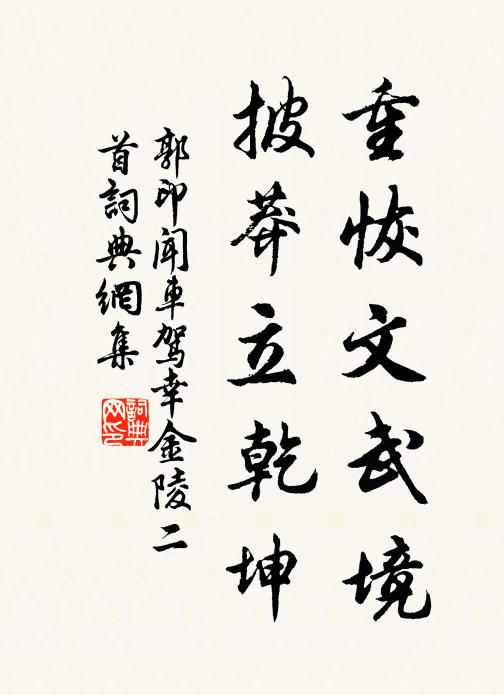 重恢文武境
披莽立乾坤
郭印聞車駕幸金陵二
首詞典網集
詞典
网印